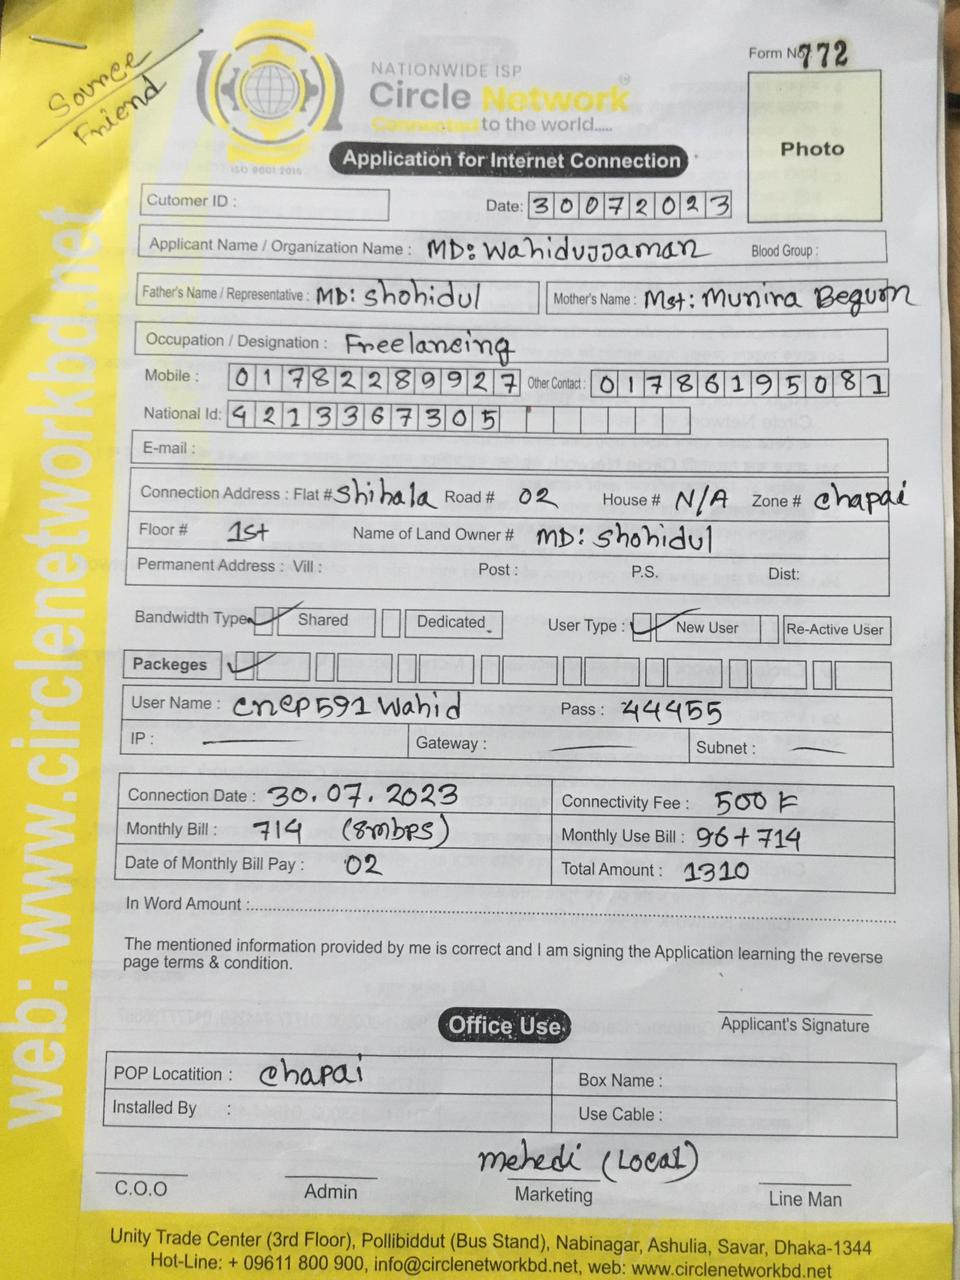 Source
Friend
NATIONWIDE ISP
Circle Network
Connected to the world.....
ISO 9001 2015
Form No 772
Photo
Application for Internet Connection
Cutomer ID :
Date: 30072023
Applicant Name / Organization Name : MD: Wahidujjaman Blood Group :
Father's Name / Representative : MD: Shohidul Mother's Name : Mst: Munira Begum
Occupation / Designation : Freelancing
Mobile : 01782289927 Other Contact : 01786195081
National Id: 4213367305
E-mail :
Connection Address : Flat # Shibala Road # 02 House # N/A Zone # Chapai
Floor # 1st Name of Land Owner # MD: Shohidul
Permanent Address : Vill : Post : P.S. Dist:
Bandwidth Type Shared Dedicated User Type : New User Re-Active User
Packeges
User Name : cnep591wahid Pass : 44455
IP : Gateway : Subnet :
Connection Date : 30.07.2023 Connectivity Fee : 500 F
Monthly Bill : 714 (8mbps) Monthly Use Bill : 96+714
Date of Monthly Bill Pay : 02 Total Amount : 1310
In Word Amount :
The mentioned information provided by me is correct and I am signing the Application learning the reverse
page terms & condition.
Applicant's Signature
Office Use
POP Locatition : Chapai Box Name :
Installed By : Use Cable :
mehedi (Local)
C.O.O Admin Marketing Line Man
Unity Trade Center (3rd Floor), Pollibiddut (Bus Stand), Nabinagar, Ashulia, Savar, Dhaka-1344
Hot-Line: + 09611 800 900, info@circlenetworkbd.net, web: www.circlenetworkbd.net
web: www.circlenetworkbd.net